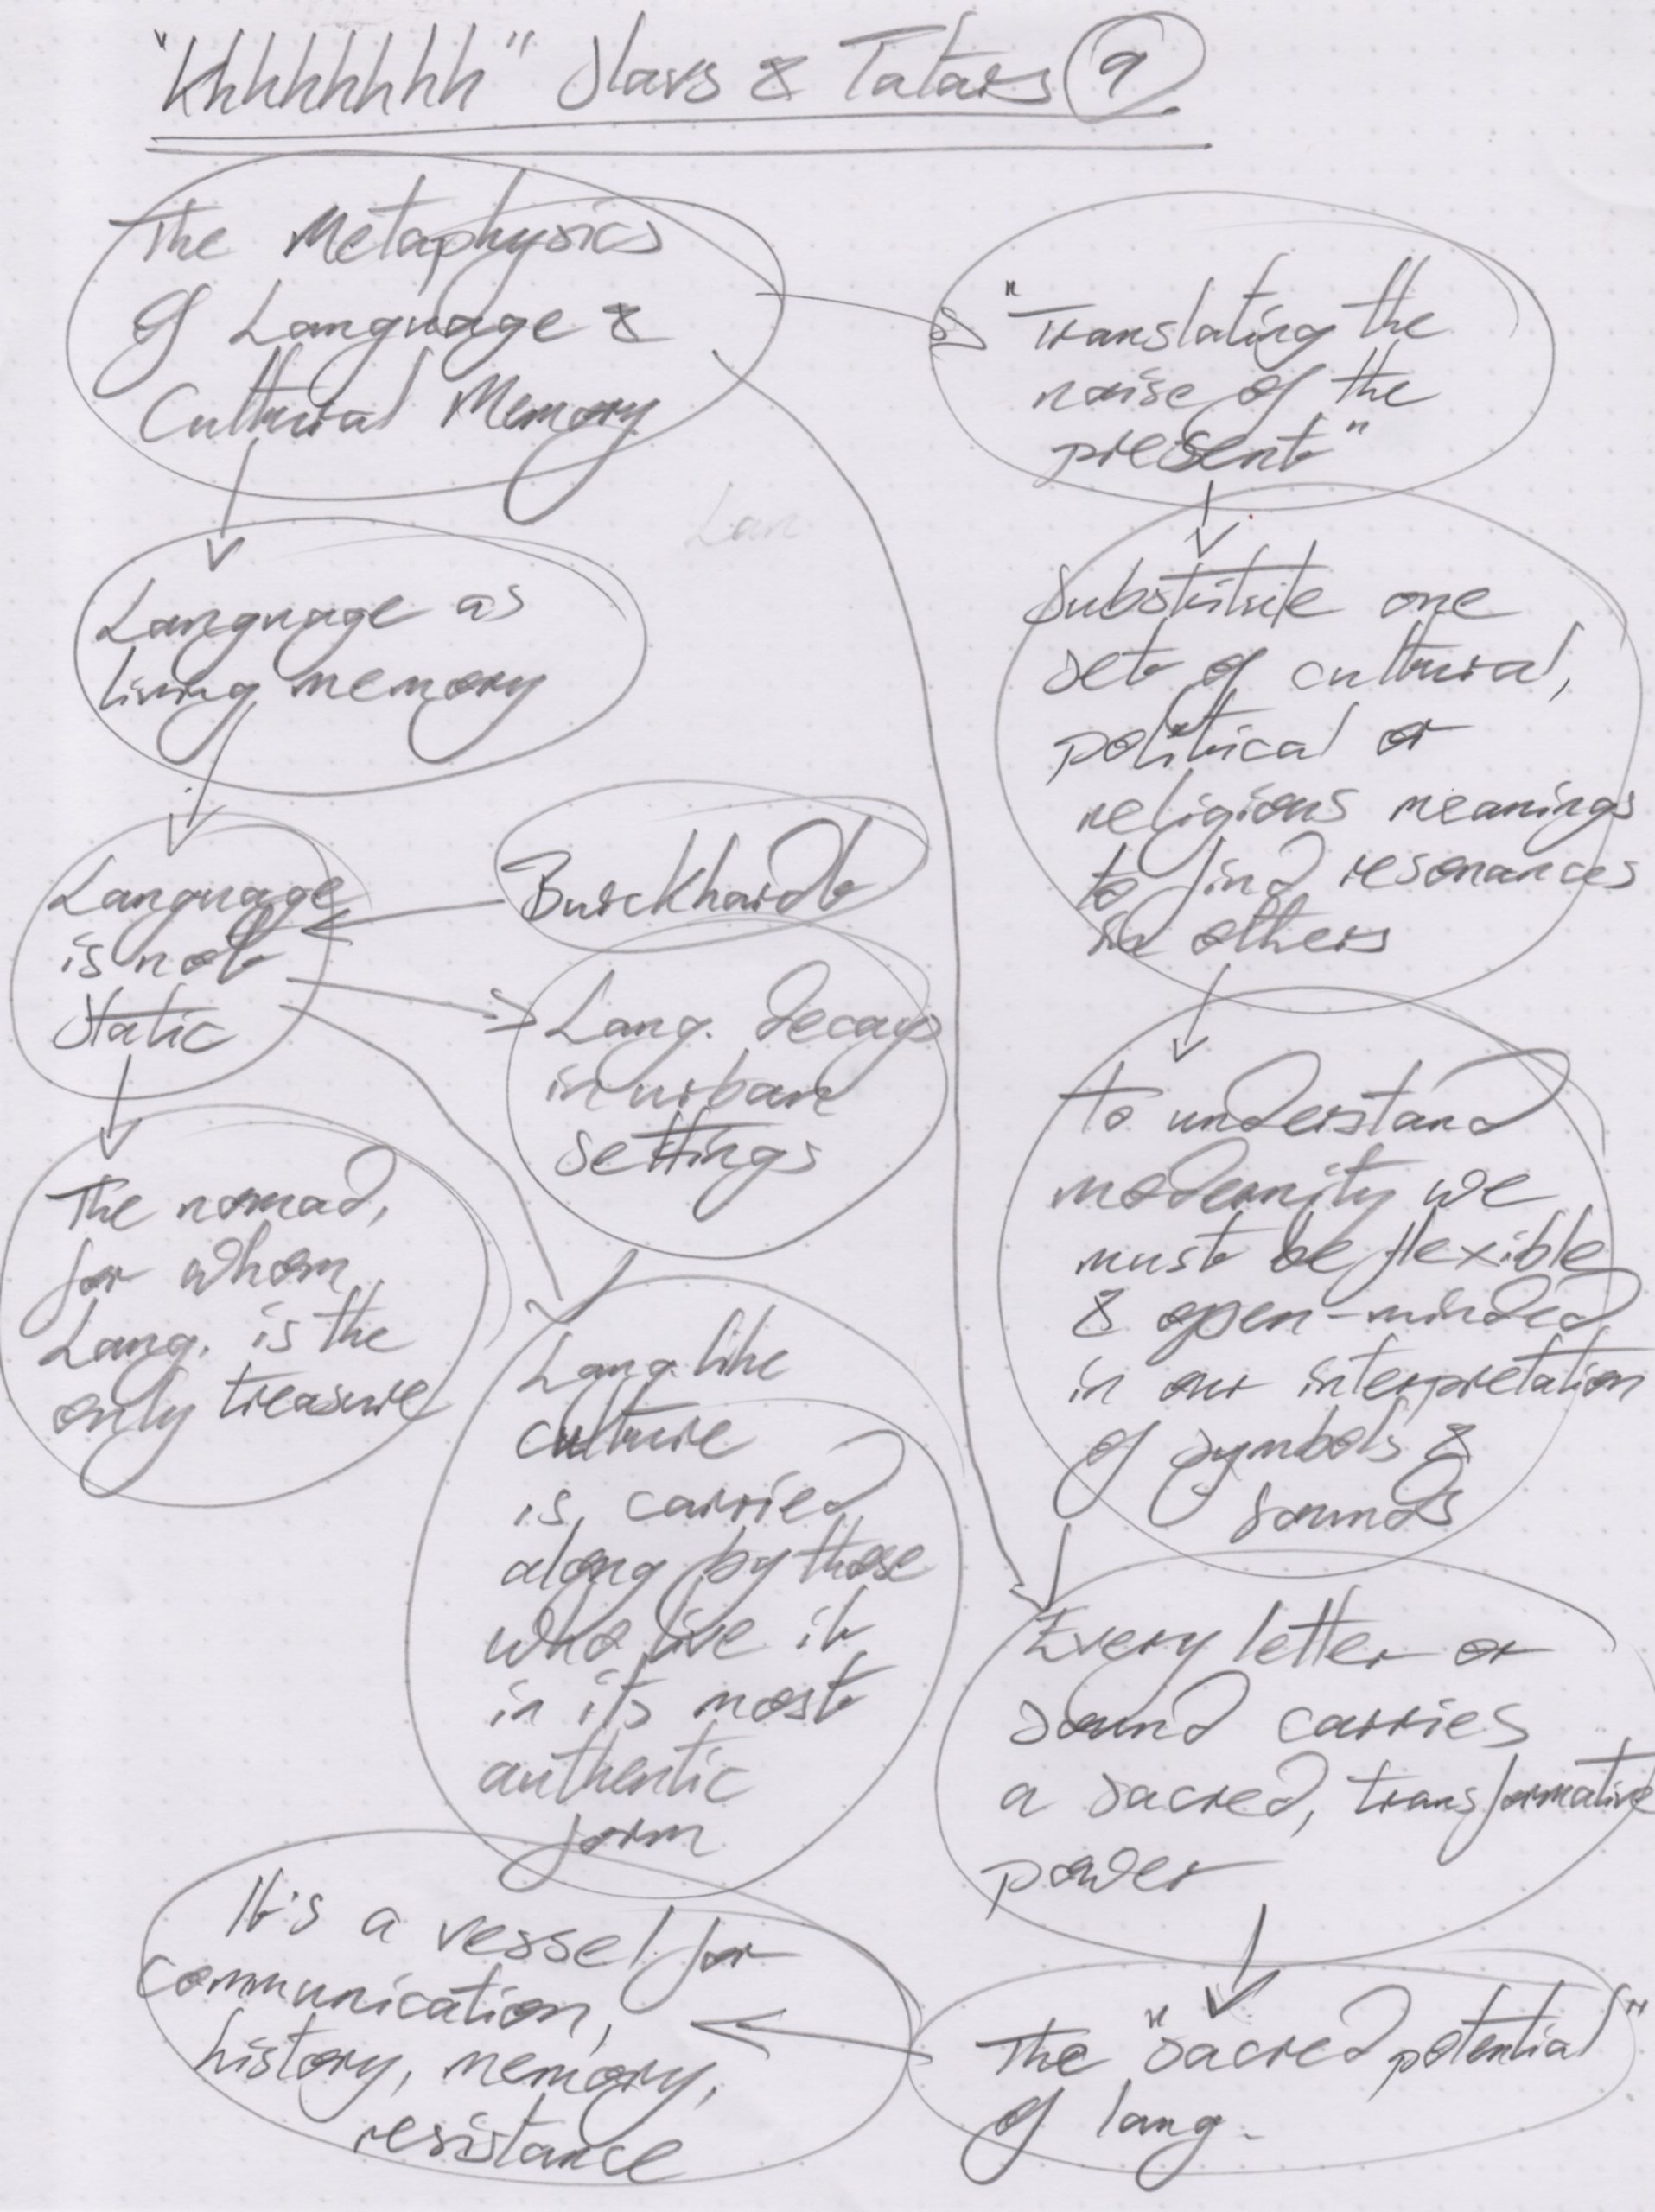 "Khhhhhhh" Slavs & Tatars 9
The Metaphysics
Of Language &
Cultural Memory
Language as
living memory
Language
is not
static
Burckhardt
Lang. decays
in urban
settings
The nomad,
for whom
Lang. is the
only treasure
Lang. like
culture
is carried
along by those
who live it
in its most
authentic
form
"Translating the
noise of the
present"
Lan
Substitute one
set of cultural,
political or
religious meanings
to find resonances
in others
To understand
modernity we
must be flexible
& open-minded
in our interpretation
of symbols &
sounds
Every letter or
sound carries
a sacred, transformative
power
The "sacred potential"
of lang.
It's a vessel for
communication,
history, memory,
resistance